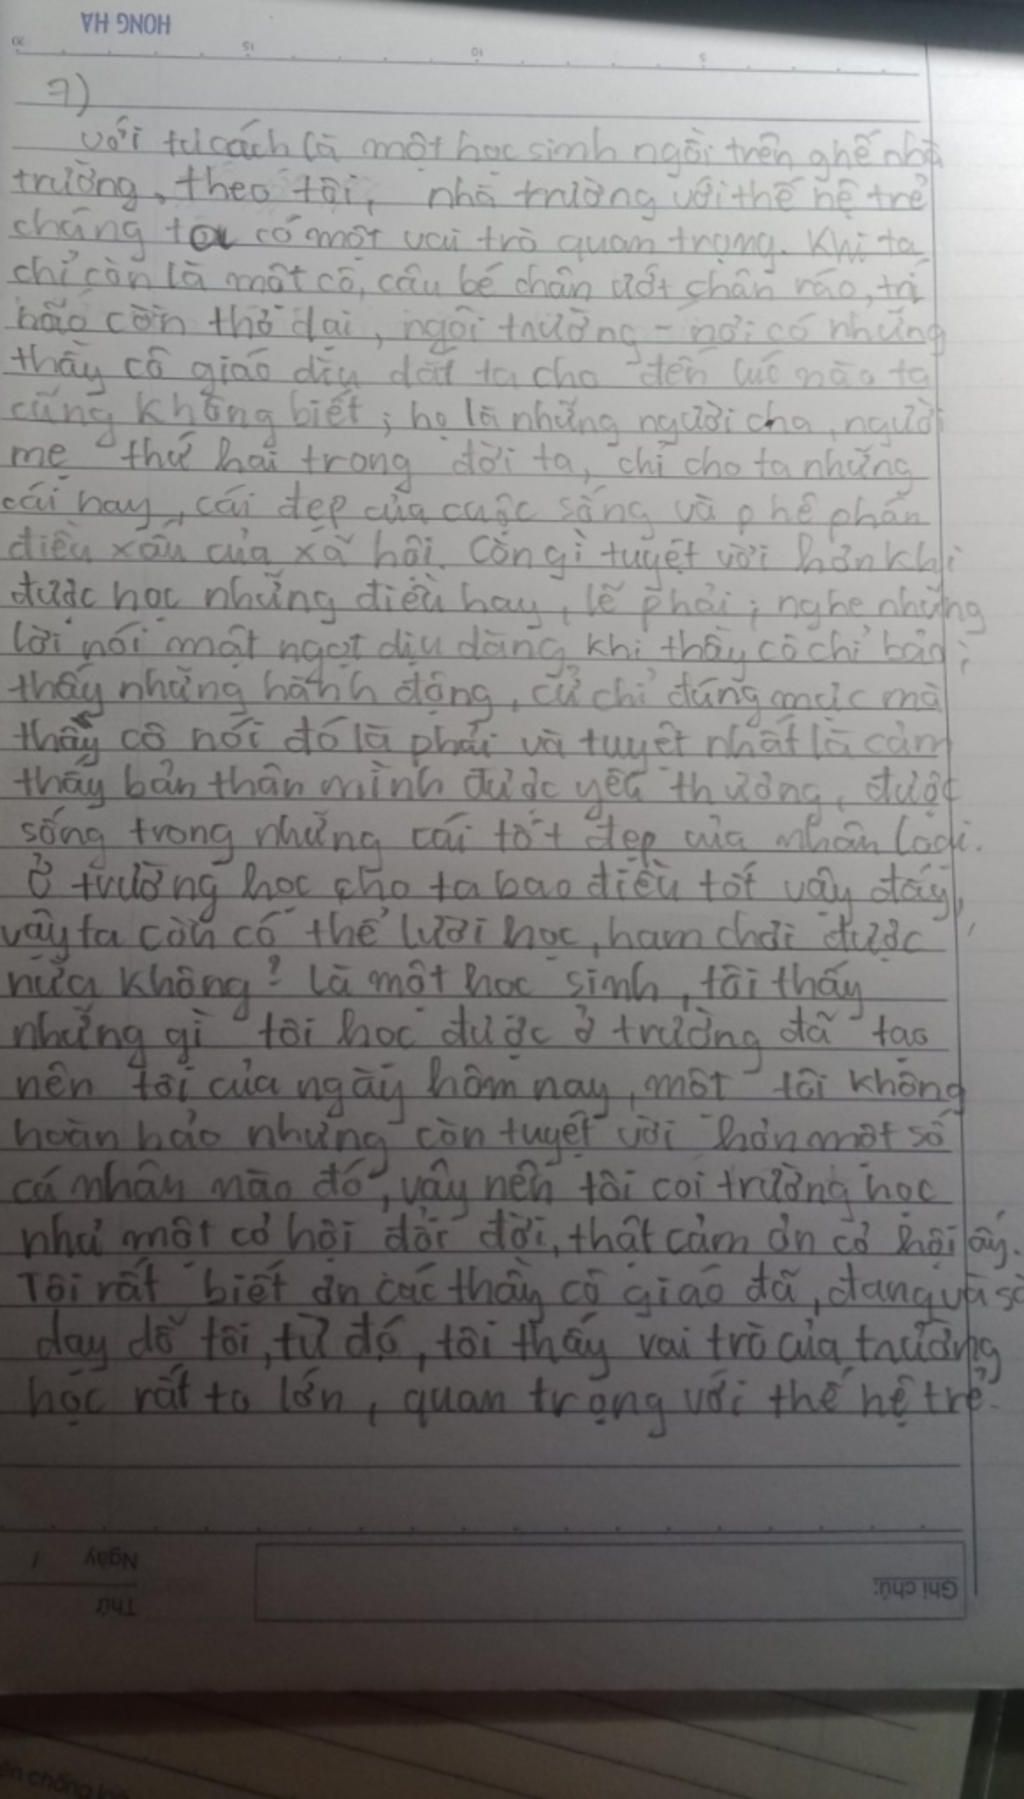 HONG HA
20 15 10 5
7)
Với tư cách là một học sinh ngồi trên ghế nhà
trường, theo tôi, nhà trường với thế hệ trẻ
chúng ta có một vai trò quan trọng. Khi ta
chỉ còn là một cô, cậu bé chân ướt chân ráo, trí
não còn thơ dại, ngôi trường - nơi có những
thầy cô giáo dìu dắt ta cho đến lúc nào ta
cũng không biết; họ là những người cha, người
mẹ thứ hai trong đời ta, chỉ cho ta những
cái hay, cái đẹp của cuộc sống và phê phán
điều xấu của xã hội. Còn gì tuyệt vời hơn khi
được học những điều hay, lẽ phải; nghe những
lời nói mật ngọt dịu dàng khi thầy cô chỉ bảo;
thấy những hành động, cử chỉ đúng mực mà
thầy cô nói đó là phải và tuyệt nhất là cảm
thấy bản thân mình được yêu thương, được
sống trong những cái tốt đẹp của nhân loại.
Ở trường học cho ta bao điều tốt vậy đấy,
vậy ta còn có thể lười học, ham chơi được
nữa không? Là một học sinh, tôi thấy
những gì tôi học được ở trường đã tạo
nên tôi của ngày hôm nay, một tôi không
hoàn hảo nhưng còn tuyệt vời hơn một số
cá nhân nào đó, vậy nên tôi coi trường học
như một cơ hội đổi đời, thật cảm ơn cơ hội ấy.
Tôi rất biết ơn các thầy cô giáo đã, đang và sẽ
dạy dỗ tôi, từ đó, tôi thấy vai trò của trường
học rất to lớn, quan trọng với thế hệ trẻ.
Ngày /
Thứ
Ghi chú: